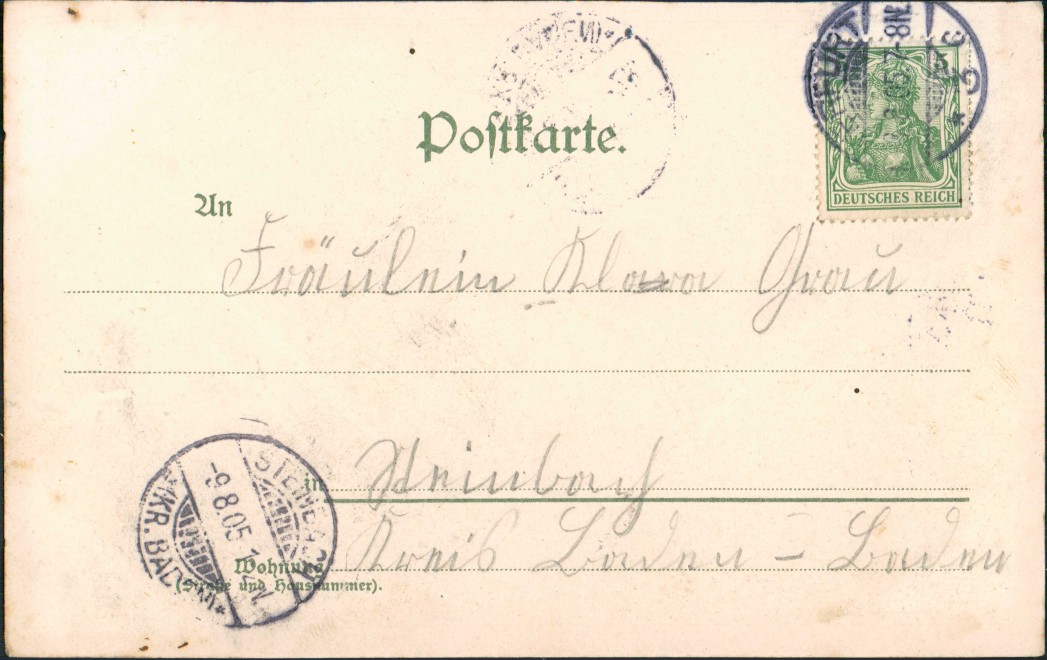 Postkarte.
5
DEUTSCHES REICH
8.05.7-8N.
An
Fräulein Klara Grau
in Steinbach
Kreis Baden - Baden
Wohnung
(Straße und Hausnummer).
STEINBACH
-9.8.05.
(KR. BADEN)